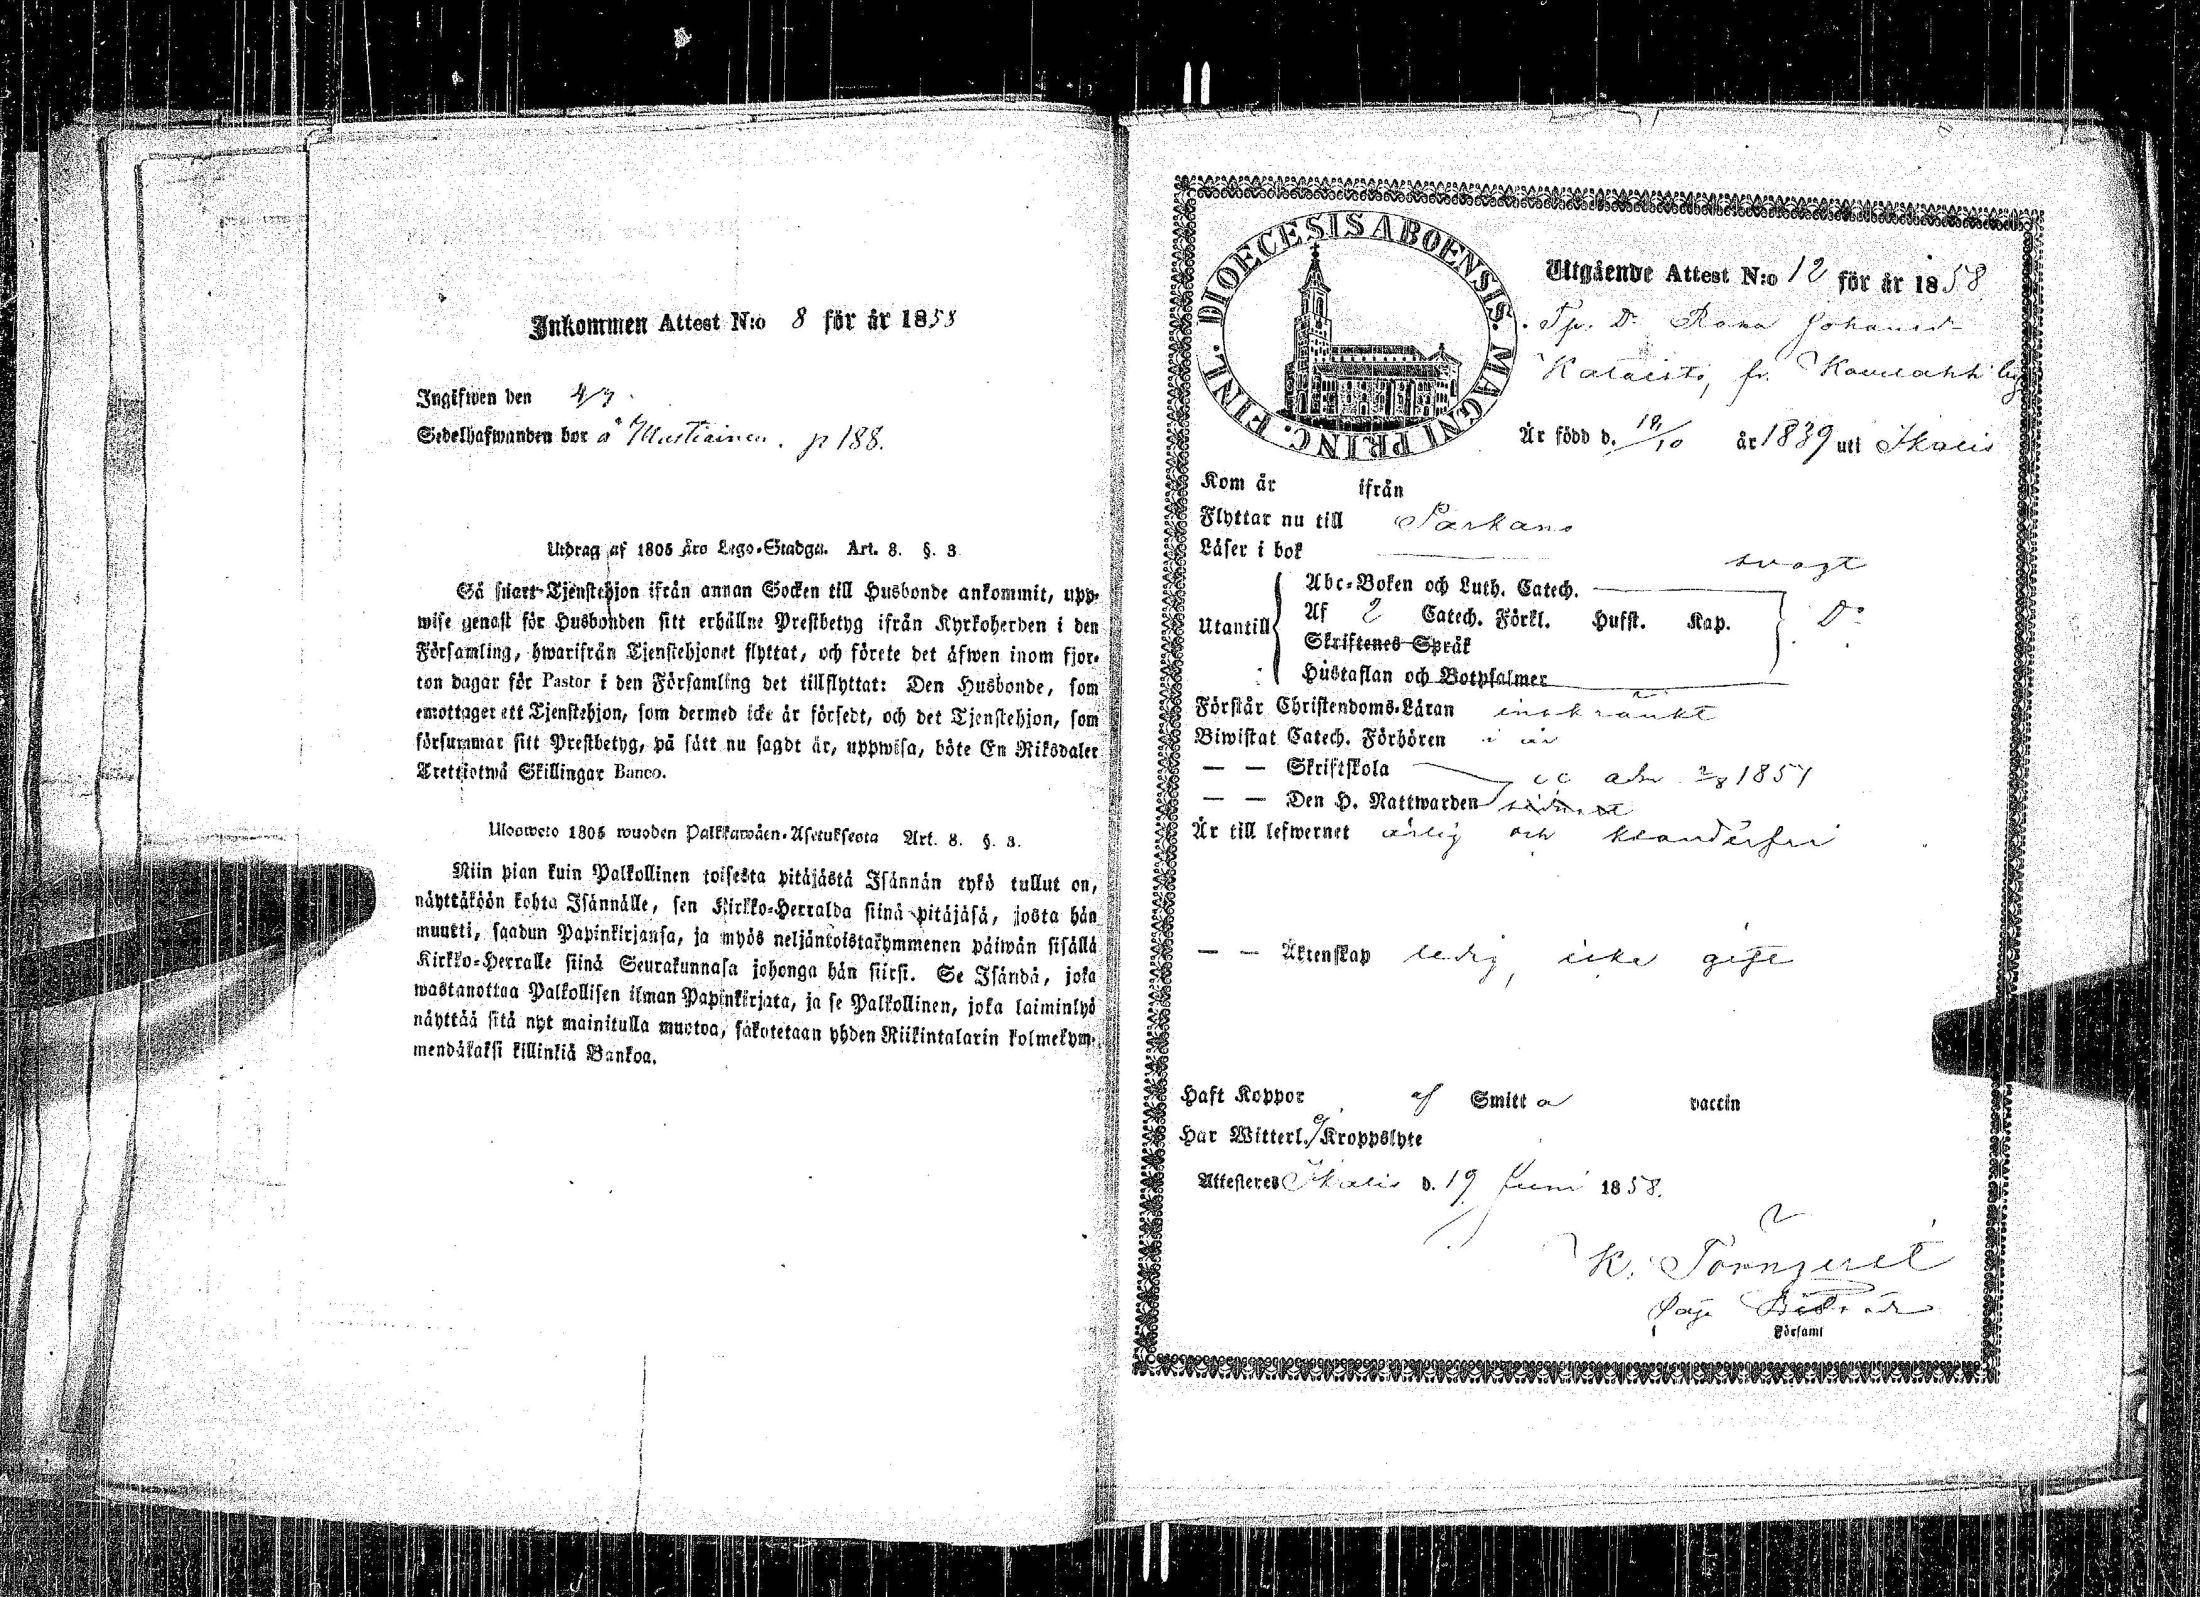 Inkommen Attest N:o 8 för år 1858
Ingifwen den 4/7.
Sedelhafwanden bor å Mustiainen. p 188.
Utdrag af 1805 års Lego-Stadga. Art. 8. §. 3
Så snart Tjenstehjon ifrån annan Socken till Husbonde ankommit, upp-
wise genast för Husbonden sitt erhållne Prestbetyg ifrån Kyrkoherden i den
Församling, hwarifrån Tjenstehjonet flyttat, och förete det äfwen inom fjor-
ton dagar för Pastor i den Församling det tillflyttat: Den Husbonde, som
emottager ett Tjenstehjon, som dermed icke är försedt, och det Tjenstehjon, som
försummar sitt Prestbetyg, på sätt nu sagdt är, uppwisa, böte En Riksdaler
Trettiotwå Skillingar Banco.
Ulosweto 1805 wuoden Palkkawäen-Asetuksesta Art. 8. §. 3.
Niin pian kuin Palkollinen toisesta pitäjästä Isännän tykö tullut on,
näyttäköön kohta Isännälle, sen Kirkko-Herralda siinä pitäjäsä, josta hän
muutti, saadun Papinkirjansa, ja myös neljäntoistakymmenen päiwän sisällä
Kirkko-Herralle siinä Seurakunnasa johonga hän siirsi. Se Isändä, joka
wastanottaa Palkollisen ilman Papinkirjata, ja se Palkollinen, joka laiminlyö
näyttää sitä nyt mainitulla muotoa, sakotetaan yhden Riikintalarin kolmekym-
mendäkaksi killinkiä Bankoa.
DIOECESIS ABOENSIS. MAGNI PRINC. FINL.
Utgående Attest N:o 12 för år 1858
Tp. D. Johansd
fr.
Är född d. /10 år 1839 uti Ikalis
Kom år ifrån
Flyttar nu till Parkano
Läser i bok svagt
Utantill
Abc-Boken och Luth. Catech.
Af 2 Catech. Förkl. Husst. Kap. Do
Skriftenes Språk
Hustaflan och Botpsalmer
Förstår Christendoms-Läran inskränkt
Biwistat Catech. Förhören i år
— — Skriftskola adm 1857
— — Den H. Nattwarden
Är till lefwernet ärlig och klanderfri
— — Äktenskap ledig, icke gift
Haft Koppor af Smitta vaccin
Har Witterl. ej Kroppslyte
Attesteras Ikalis d. 19 Juni 1858.
K. Törnqvist
Församl